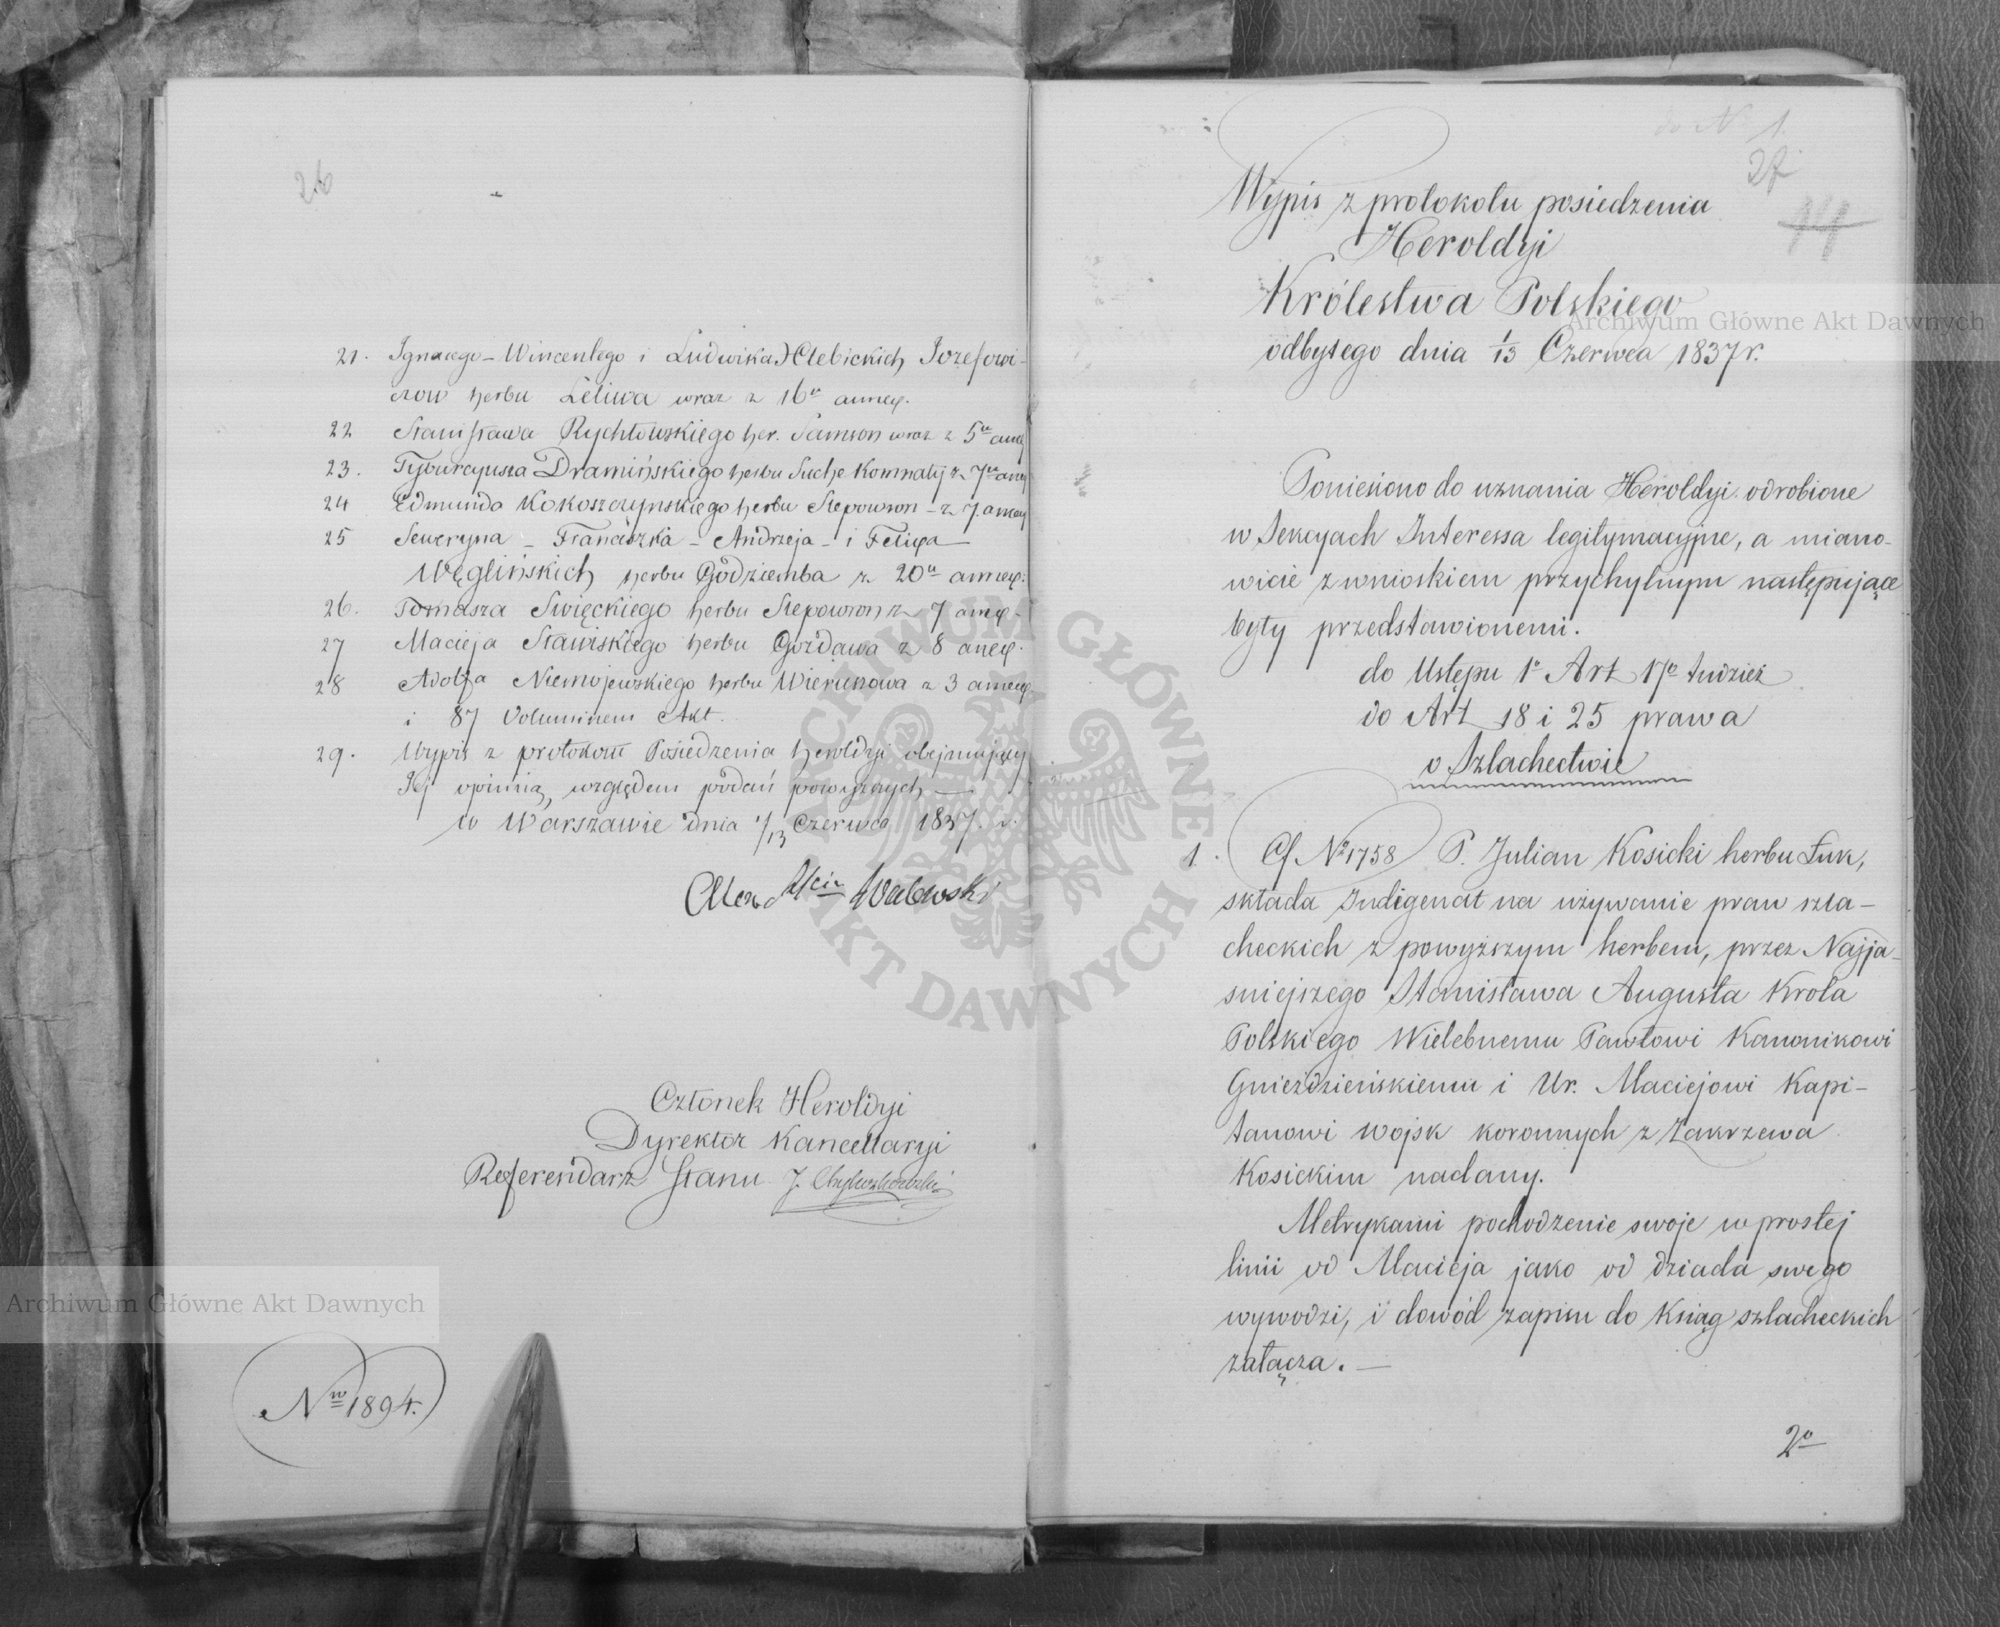 26
21. Ignacego – Wincentego i Ludwika Chlebickich Jozefowi-
czow herbu Leliwa wraz z 16u annex.
22 Stanisława Rychłowskiego her. Samson wraz z 5u anex
23. Tyburcyusza Dramińskiego herbu Suche Komnaty z 7u anex
24 Edmunda Kokoszczynskiego herbu Slepowron – z 7. annex
25 Seweryna – Franciszka – Andrzeja – i Felixa –
Węglińskich herbu Godziemba z 20u annex.
26. Tomasza Swięckiego herbu Slepowron z 7 anex.
27 Macieja Stawiskiego herbu Gozdawa z 8 anex.
28 Adolfa Niemojewskiego herbu Wierusowa z 3 annex
i 87 Voluminem Akt.
29. Wypis z protokołu Posiedzenia heroldyi obejmujący
Jej opinią, względem podań powyższych –
w Warszawie dnia 1/13 Czerwca 1837. r.
Alex. Walewski
Członek Heroldyi
Dyrektor Kancellaryi
Referendarz Stanu J.
Nro 1894.
do No 1.
27
14
Wypis z protokołu posiedzenia
Heroldyi
Królestwa Polskiego
odbytego dnia 1/13 Czerwca 1837 r.
Poniesiono do uznania Heroldyi odrobione
w Sekcyach Interessa legitymacyjne, a miano-
wicie z wnioskiem przychylnym następujące
były przedstawionemi.
do Ustępu 1o Art 17o tudzież
do Art 18 i 25 prawa
o Szlachectwie
1. Cf No 1758 P. Julian Kosicki herbu Łuk,
składa Indigenat na używanie praw szla-
checkich z powyższym herbem, przez Najja-
sniejszego Stanisława Augusta Krola
Polskiego Wielebnemu Pawłowi Kanonikowi
Gnieździeńskiemu i Ur. Maciejowi Kapi-
tanowi wojsk koronnych z Zakrzewa
Kosickim nadany.
Metrykami pochodzenie swoje w prostej
linii od Macieja jako od dziada swego
wywodzi, i dowód zapisu do Ksiąg szlacheckich
załącza. –
2o
Archiwum Główne Akt Dawnych
Archiwum Główne Akt Dawnych
ARCHIWUM GŁÓWNE AKT DAWNYCH